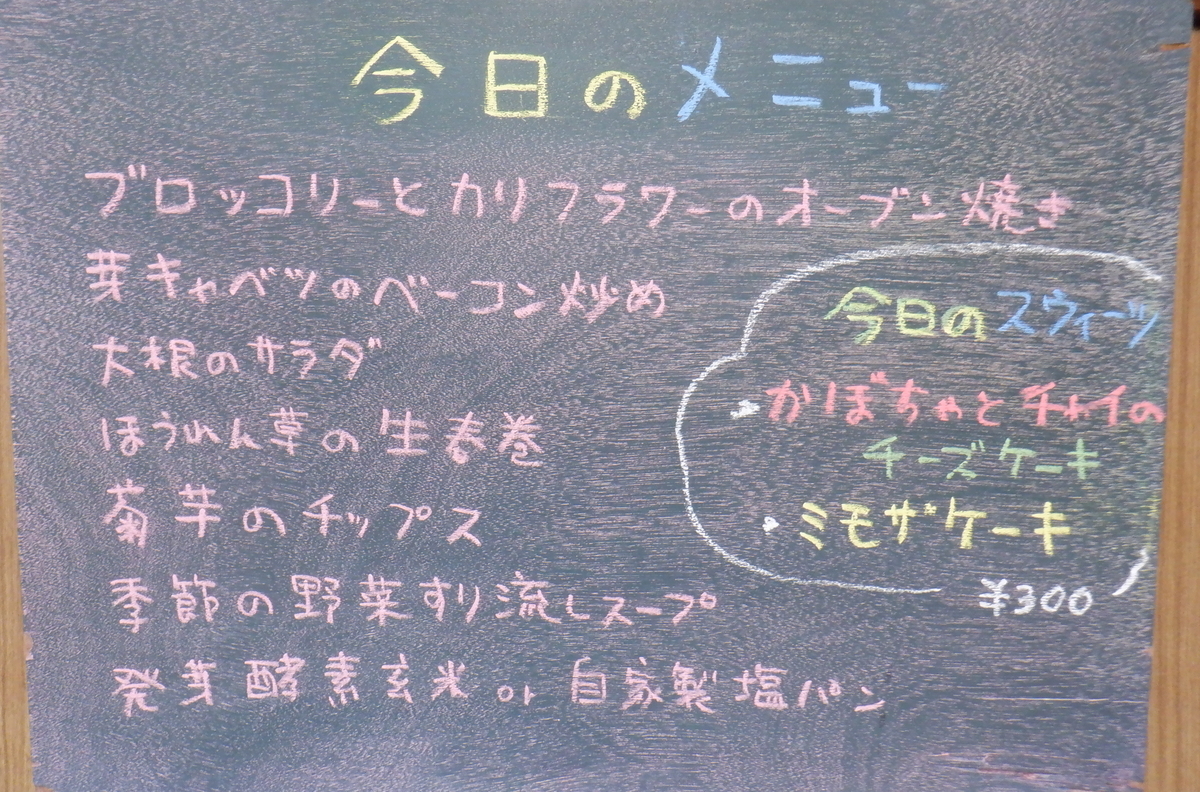 今日のメニュー
ブロッコリーとカリフラワーのオーブン焼き
芽キャベツのベーコン炒め
大根のサラダ
ほうれん草の生春巻
菊芋のチップス
季節の野菜すり流しスープ
発芽酵素玄米 or 自家製塩パン
今日のスウィーツ
かぼちゃとチャイの
チーズケーキ
ミモザケーキ
¥300